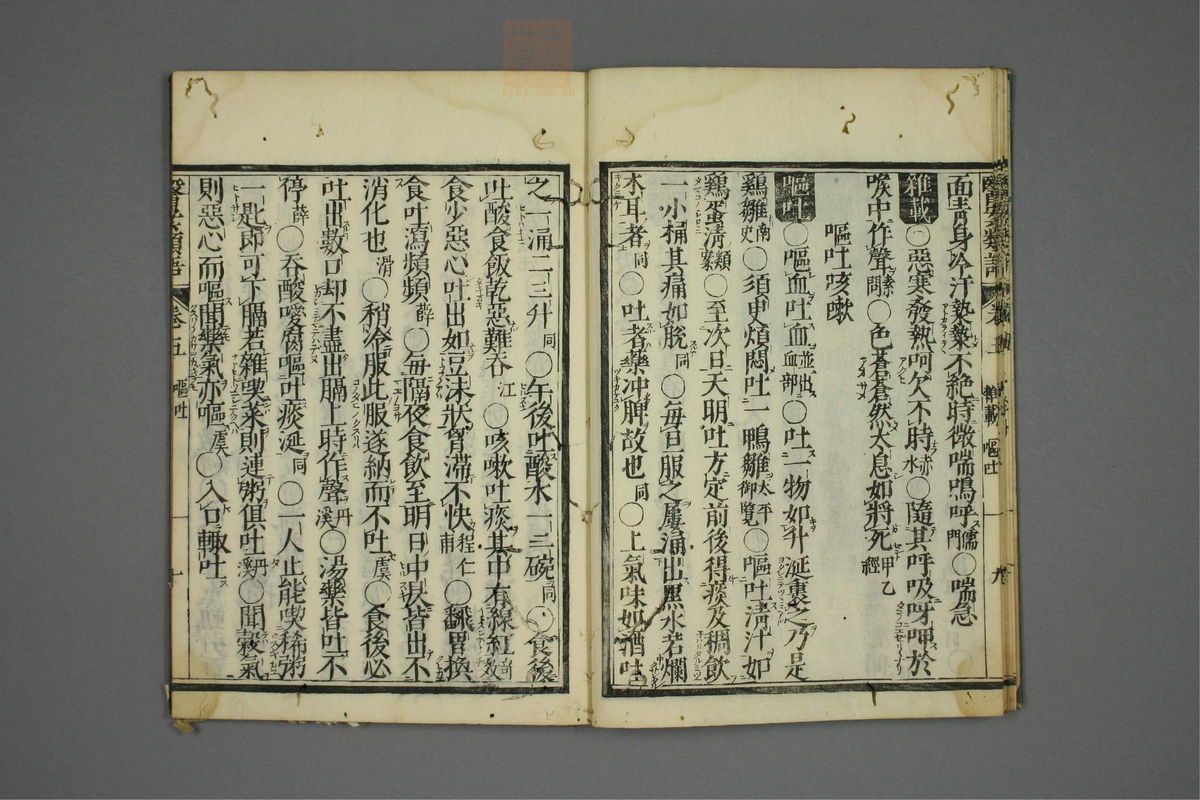 面青身冷汗漐漐不絕時微喘嗚呼儒門○喘急
雜載○惡寒發熱呵欠不時赤水○隨其呼吸呀呷於
喉中作聲素問○色蒼蒼然太息如將死甲乙經
嘔吐咳嗽
嘔吐○嘔血吐血並出血部○吐一物如升涎裹之乃是
鷄雛南史○須臾煩悶吐一鴨雛太平御覽○嘔吐淸汁如
鷄蛋淸類案○至次日天明吐方定前後得痰及稠飲
一小桶其痛如脫同○每旦服之屢涌出黑水若爛
木耳者同○吐者藥冲脾故也同○上氣味如酒吐
之一涌二三升同○午後吐酸水一二碗同○食後
吐酸食飯乾惡難吞江○咳嗽吐痰其中有線紅奇效
食少惡心吐出如豆沫狀胃滯不快程仁甫○飜胃換
食吐瀉頻頻薛○每隔夜食飲至明日中昃皆出不
消化也滑○稍冷服此服遂納而不吐虞○食後必
吐出數口却不盡出膈上時作聲丹溪○湯藥皆吐不
停薛○吞酸噯腐嘔吐痰涎同○一人止能喫稀粥
一匙卽可下膈若雜喫菜則連粥俱吐丹溪○聞穀氣
則惡心而嘔聞藥氣亦嘔虞○入口輒吐
卷五 嘔吐
雜載 嘔吐